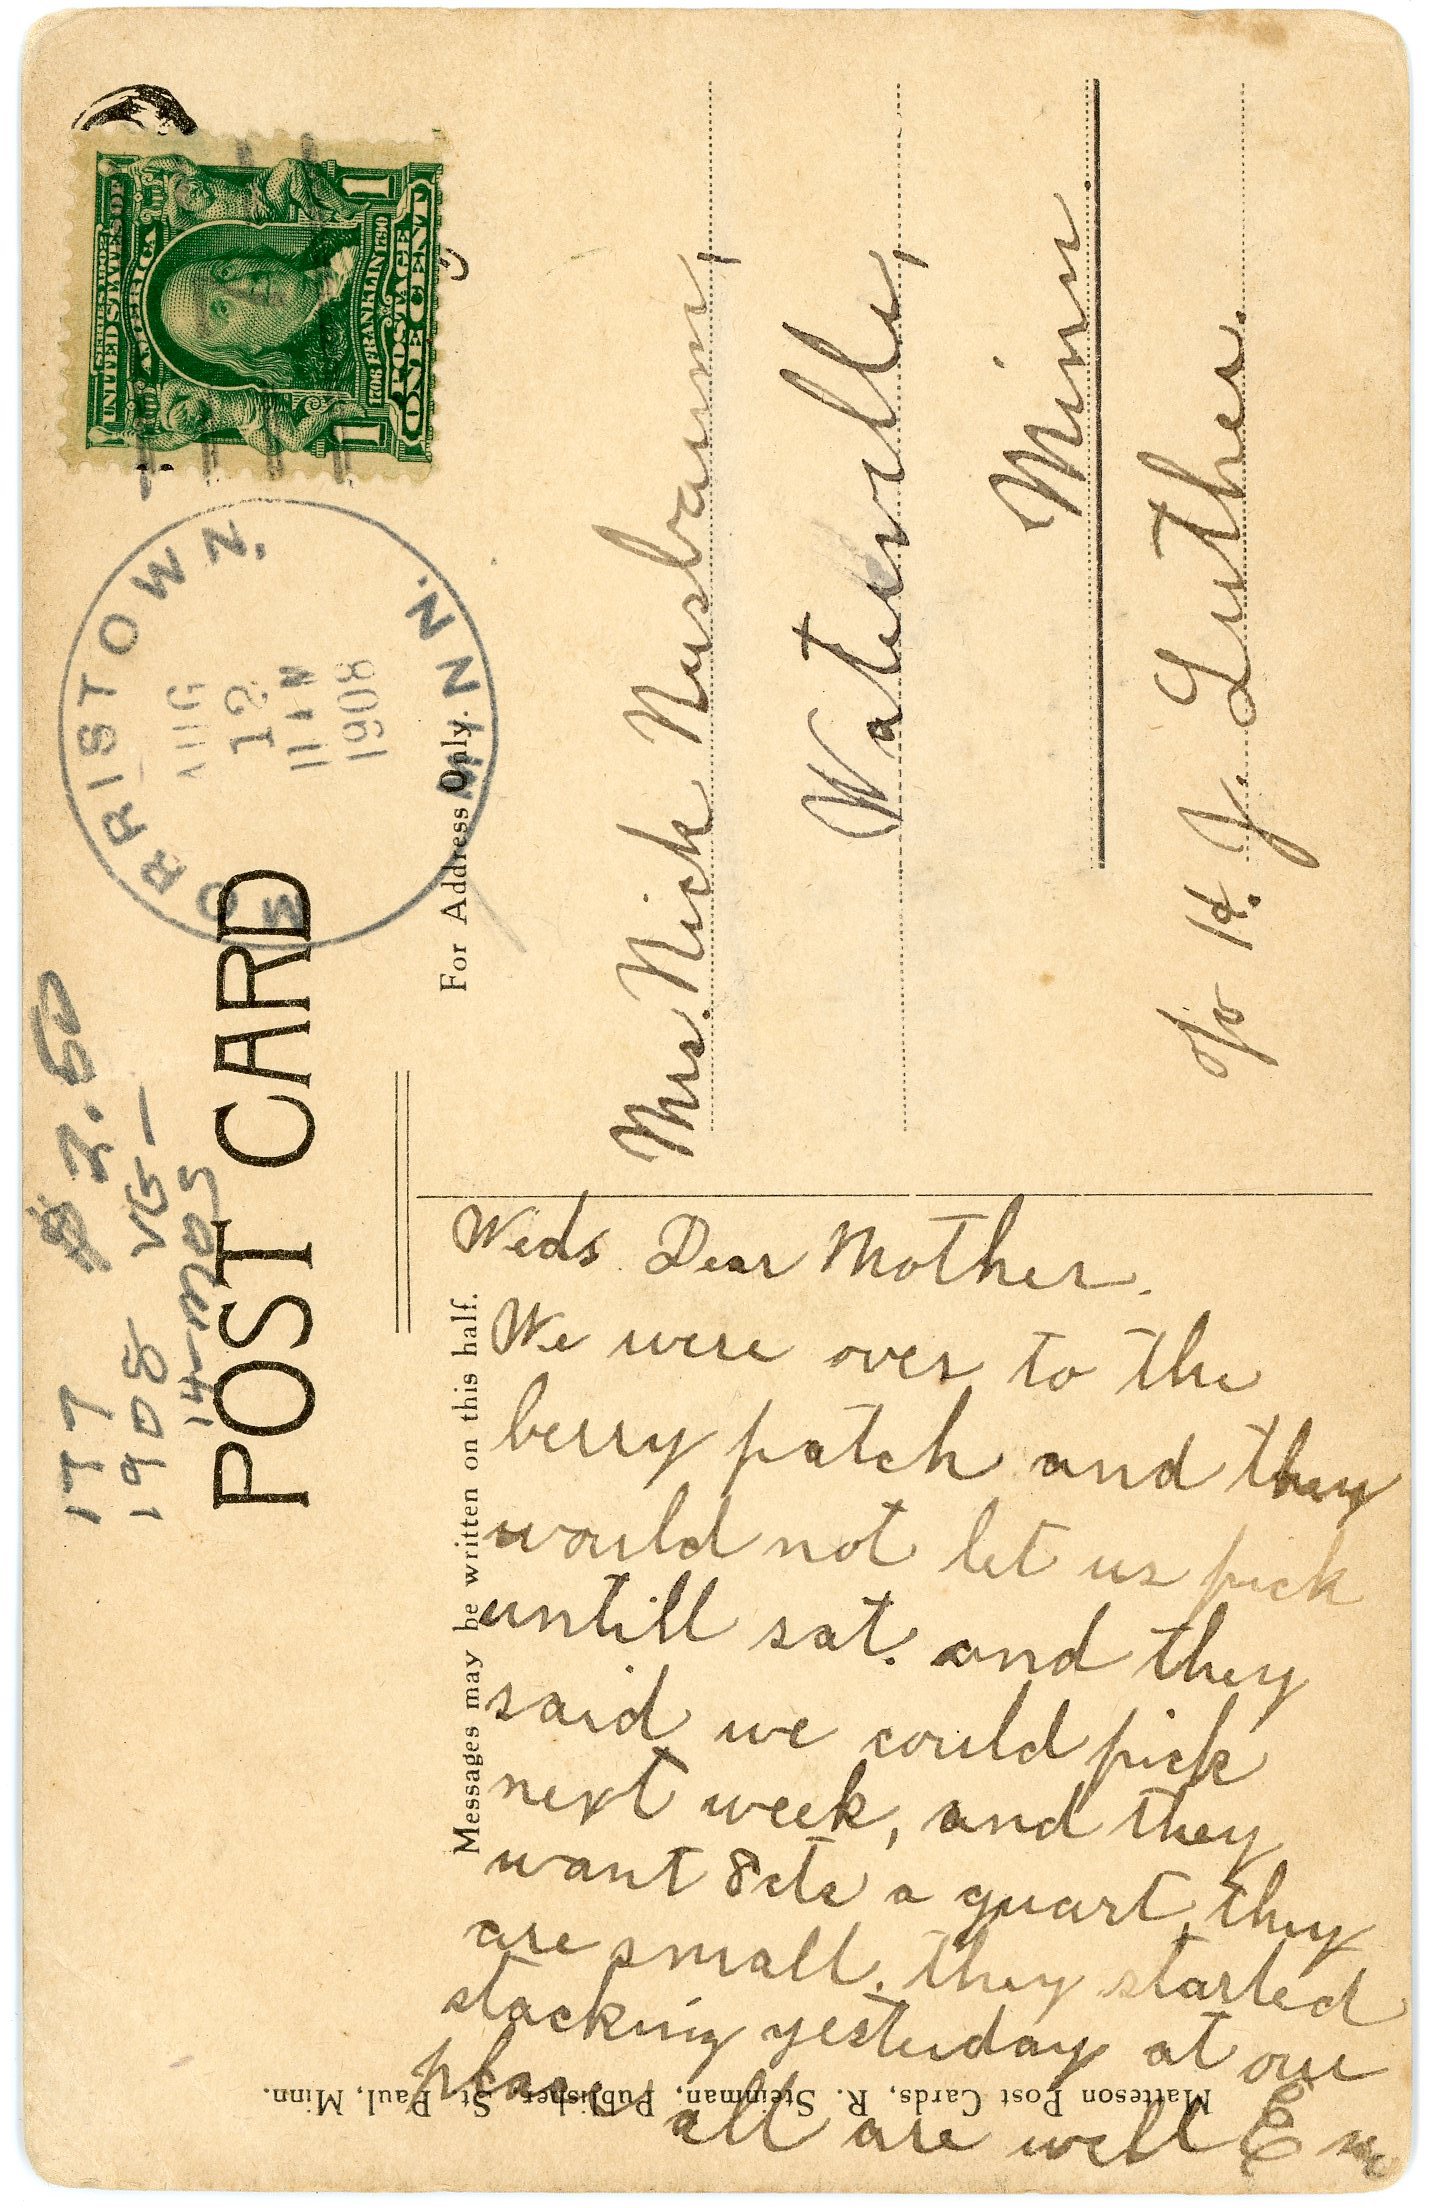 177 $2.50
1908 VG-
14-MOS
POST CARD
MORRISTOWN
MINN.
AUG
12
1908
SERIES 1902
UNITED STATES OF
AMERICA
1706 FRANKLIN 1790
POSTAGE
1 ONE CENT 1
Messages may be written on this half.
For Address Only.
Weds. Dear Mother.
We were over to the
berry patch and they
would not let us pick
untill sat. and they
said we could pick
next week, and they
want 8cts a quart, they
are small. they started
stacking yesterday at our
place all are well Em
Mrs. Nick Nusbaum,
Waterville,
Minn.
c/o H. J. Luther.
Matteson Post Cards, R. Steinman, Publisher, St. Paul, Minn.